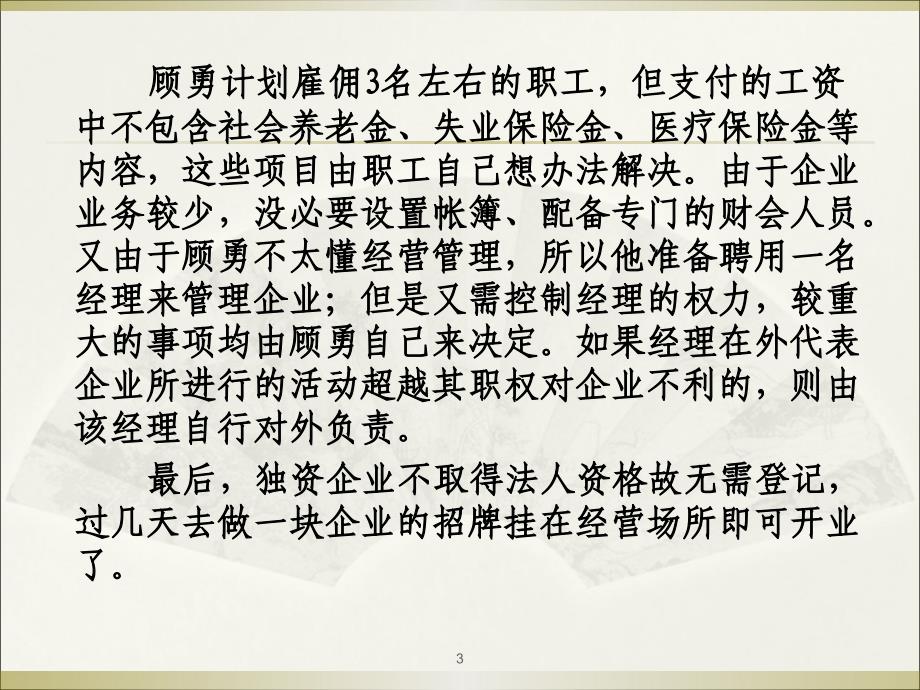 顾勇计划雇佣3名左右的职工，但支付的工资
中不包含社会养老金、失业保险金、医疗保险金等
内容，这些项目由职工自己想办法解决。由于企业
业务较少，没必要设置帐簿、配备专门的财会人员。
又由于顾勇不太懂经营管理，所以他准备聘用一名
经理来管理企业；但是又需控制经理的权力，较重
大的事项均由顾勇自己来决定。如果经理在外代表
企业所进行的活动超越其职权对企业不利的，则由
该经理自行对外负责。
最后，独资企业不取得法人资格故无需登记，
过几天去做一块企业的招牌挂在经营场所即可开业
了。
3